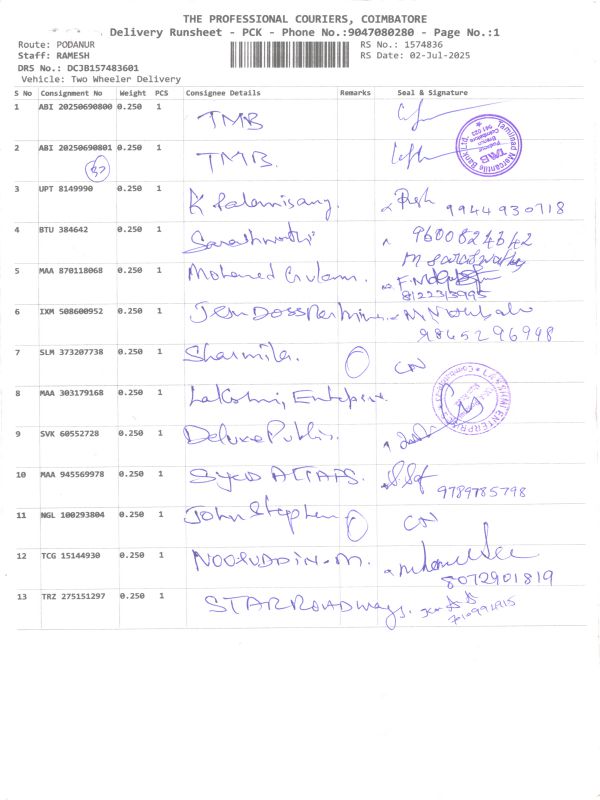 THE PROFESSIONAL COURIERS, COIMBATORE
Delivery Runsheet - PCK - Phone No.:9047080280 - Page No.:1
Route: PODANUR RS No.: 1574836
Staff: RAMESH RS Date: 02-Jul-2025
DRS No.: DCJB157483601
Vehicle: Two Wheeler Delivery
S No Consignment No Weight PCS Consignee Details Remarks Seal & Signature
1 ABI 20250690800 0.250 1 TMB
2 ABI 20250690801 0.250 1 TMB.
Tamilnad Mercantile Bank Ltd. TMB Podanur Branch Coimbatore 641 023
3 UPT 8149990 0.250 1 K Palanisamy. 9944930718
4 BTU 384642 0.250 1 9600824642
5 MAA 870118068 0.250 1 Mohamed Gulam.
6 IXM 508600952 0.250 1
9865296998
7 SLM 373207738 0.250 1 Sharmila.
8 MAA 303179168 0.250 1 Lakshmi, Enterprise.
LAKSHMI ENTERPRISES
9 SVK 60552728 0.250 1 Deluxe Public.
10 MAA 945569978 0.250 1 Syed ALTAFS.
9789785798
11 NGL 100293804 0.250 1 John Stephen
12 TCG 15144930 0.250 1 NOORUDDIN-M.
8072901819
13 TRZ 275151297 0.250 1 STARROADways.